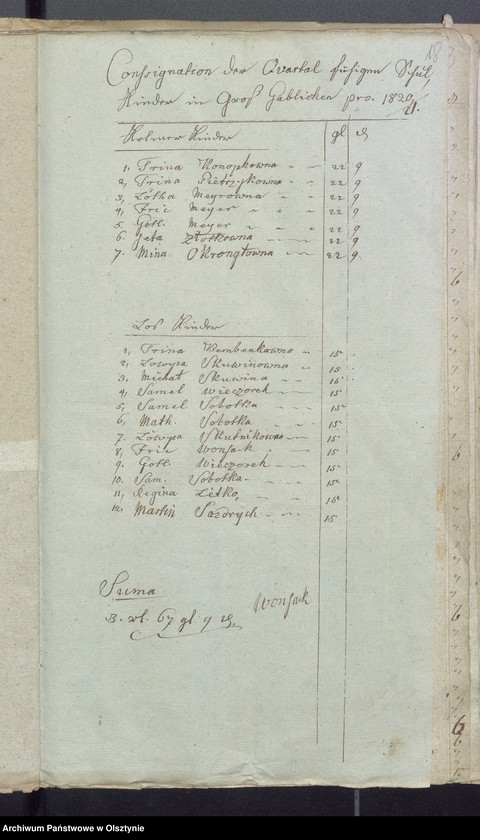 18
Consignation der Quartal fusigen Schul,
Kinder in Groß Gablicken pro. 1820/21.
Kolmer Kinder gl
1, Trina Konopkowna 22 9
2, Trina Pietrzykowna 22 9
3, Lotka Meyrowna 22 9
4, Fric Meyer 22 9
5. Gotl. Meyer 22 9
6. Jeta Złotkowna 22 9
7. Mina Okrongłowna 22 9
Los Kinder
1, Trina Bembenkowna 15
2, Lowyza Skuwinowna 15
3, Michał Skuwina 15
4, Samel Wieczorek 15
5, Samel Sobotka 15
6, Math. Sobotka 15
7. Lowyza Skutnikowna 15
8, Fric Wonsak 15
9. Gotl. Wieczorek 15
10. Sam. Sobotka 15
11, Regina Letko, 15
12. Martin Sazdrych 15
Suma
3. rl. 67 gl 9
Wonsack
Archiwum Państwowe w Olsztynie